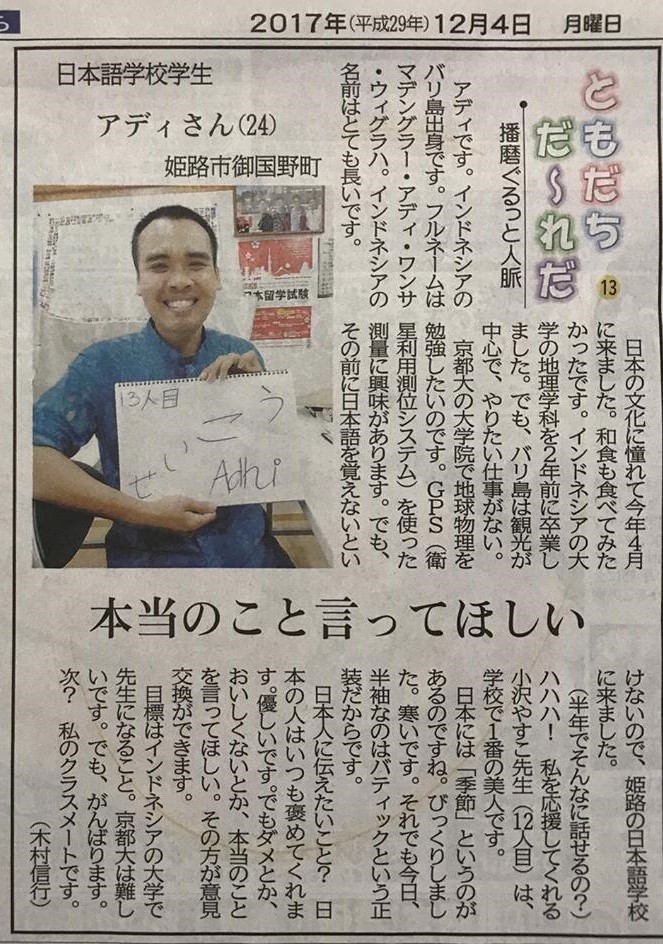 2017年(平成29年)12月4日　月曜日
ともだち
だ〜れだ
13
播磨ぐるっと人脈
日本語学校学生
アディさん(24)
姫路市御国野町
アディです。インドネシアの
バリ島出身です。フルネームは
マデングラー・アディ・ワンサ
・ウィグラハ。インドネシアの
名前はとても長いです。
日本の文化に憧れて今年4月
に来ました。和食も食べてみた
かったです。インドネシアの大
学の地理学科を2年前に卒業し
ました。でも、バリ島は観光が
中心で、やりたい仕事がない。
京都大の大学院で地球物理を
勉強したいのです。GPS(衛
星利用測位システム)を使った
測量に興味があります。でも、
その前に日本語を覚えないとい
日本留学試験
13人目
せいこう
Adhi
本当のこと言ってほしい
けないので、姫路の日本語学校
に来ました。
(半年でそんなに話せるの?)
ハハハ!　私を応援してくれる
小沢やすこ先生(12人目)は、
学校で1番の美人です。
日本には「季節」というのが
あるのですね。びっくりしまし
た。寒いです。それでも今日、
半袖なのはバティックという正
装だからです。
日本人に伝えたいこと?　日
本の人はいつも褒めてくれま
す。優しいです。でもダメとか、
おいしくないとか、本当のこと
を言ってほしい。その方が意見
交換ができます。
目標はインドネシアの大学で
先生になること。京都大は難し
いです。でも、がんばります。
次?　私のクラスメートです。
(木村信行)